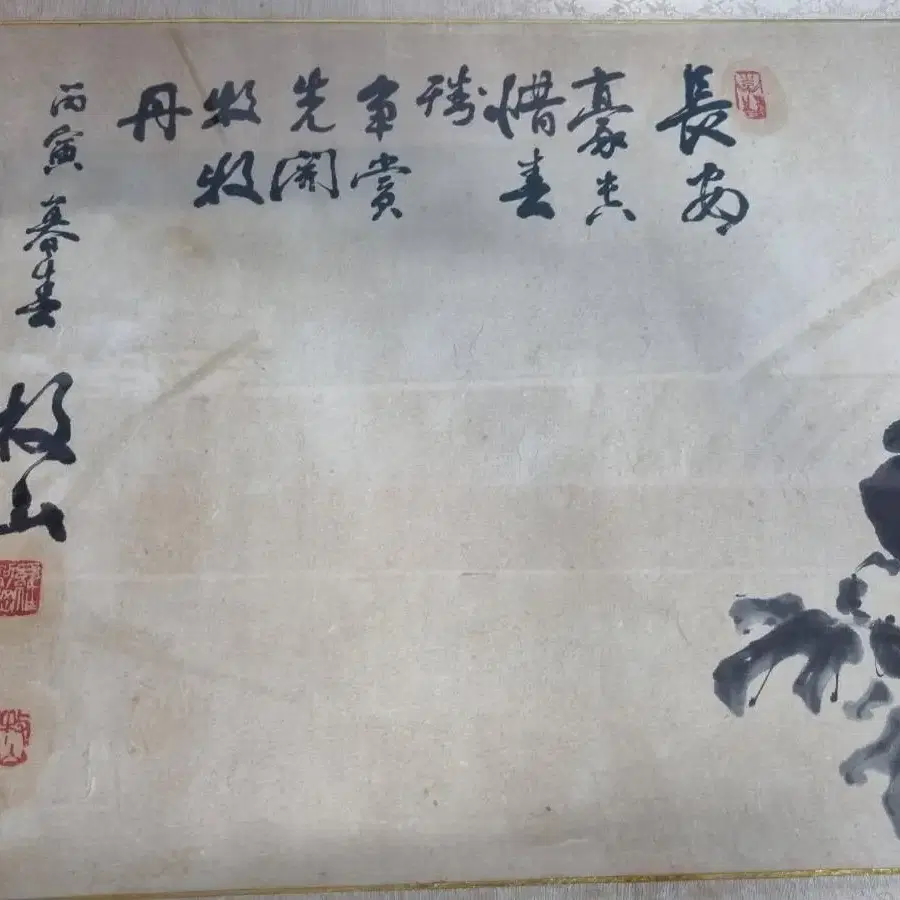 長安
豪貴
惜春
殘
爭賞
先開
牧牧
丹
丙寅 暮春
牧山
牧山